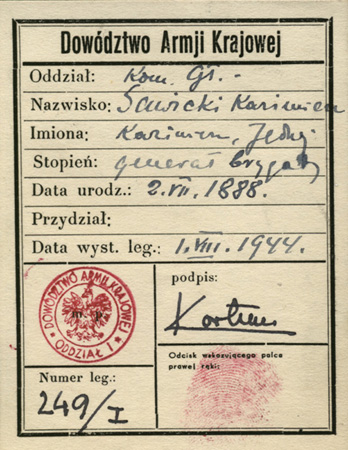 Dowództwo Armji Krajowej
Oddział: Kom. Gł. -
Nazwisko: Sawicki Kazimierz
Imiona: Kazimierz, Jędrzej
Stopień: generał brygady
Data urodz.: 2.VII.1888.
Przydział:
Data wyst. leg.: 1.VIII.1944.
DOWÓDZTWO ARMJI KRAJOWEJ
m. p.
ODDZIAŁ I
Numer leg.:
249/I
podpis:
Kortum
Odcisk wskazującego palca
prawej ręki: